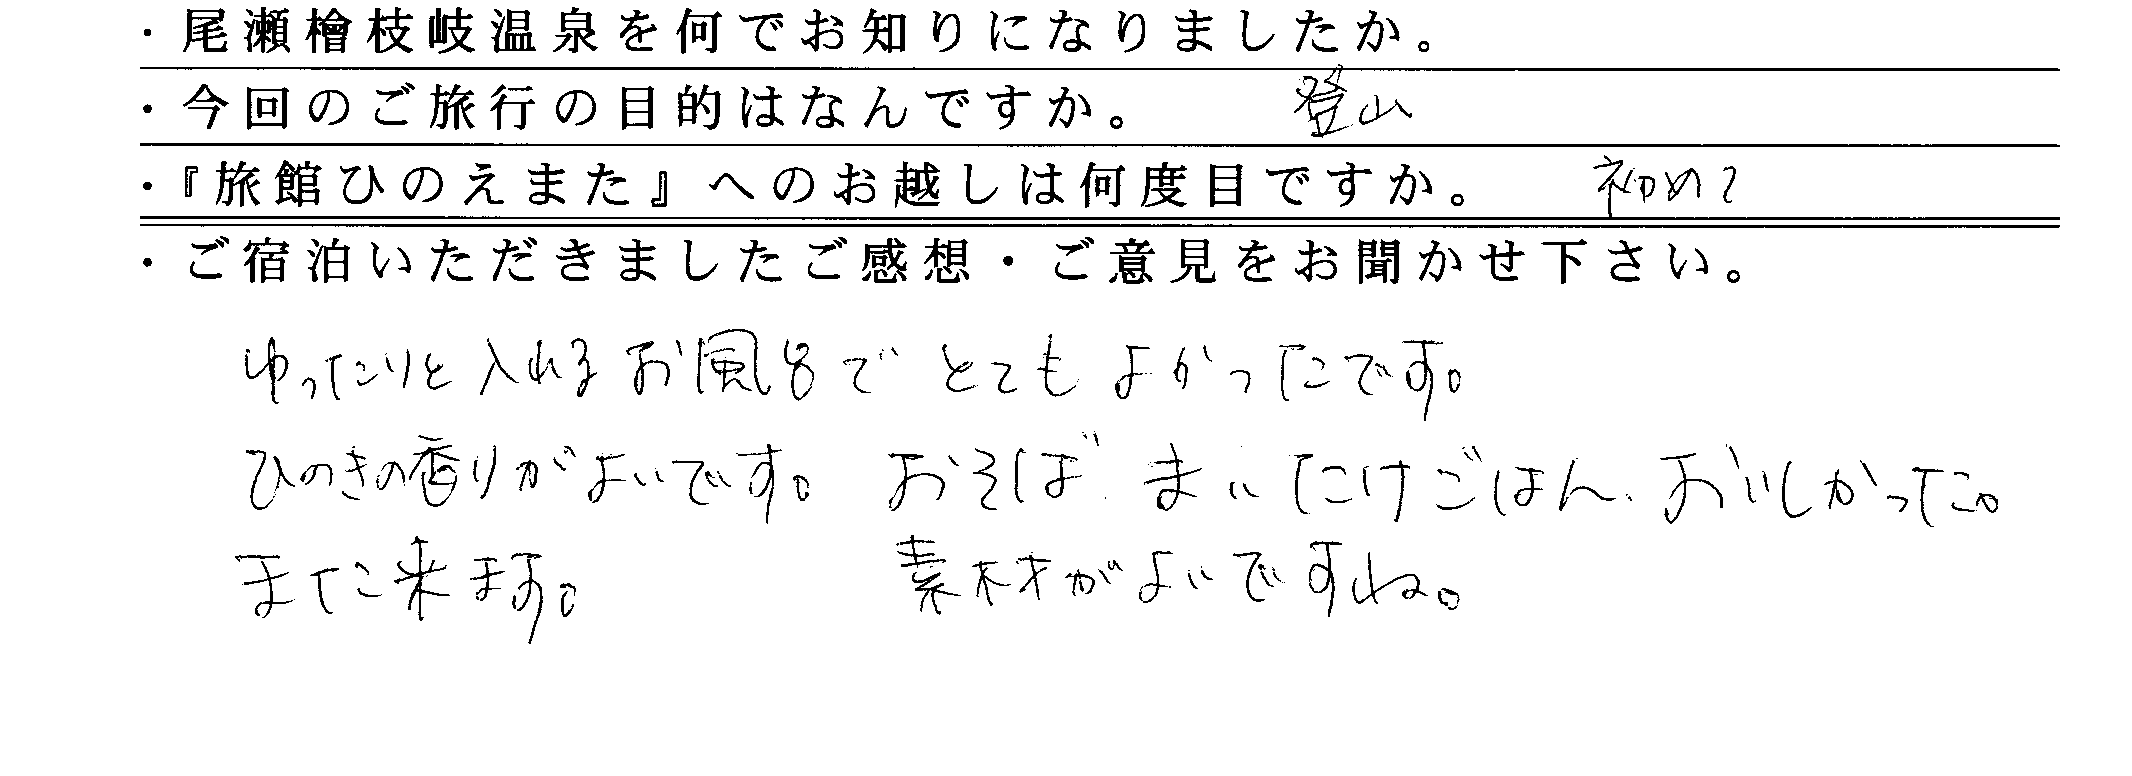 ・尾瀬檜枝岐温泉を何でお知りになりましたか。
・今回のご旅行の目的はなんですか。 登山
・『旅館ひのえまた』へのお越しは何度目ですか。 初めて
・ご宿泊いただきましたご感想・ご意見をお聞かせ下さい。
ゆったりと入れるお風呂でとてもよかったです。
ひのきの香りがよいです。 おそば、まいたけごはん、おいしかった。
また来ます。 素材がよいですね。